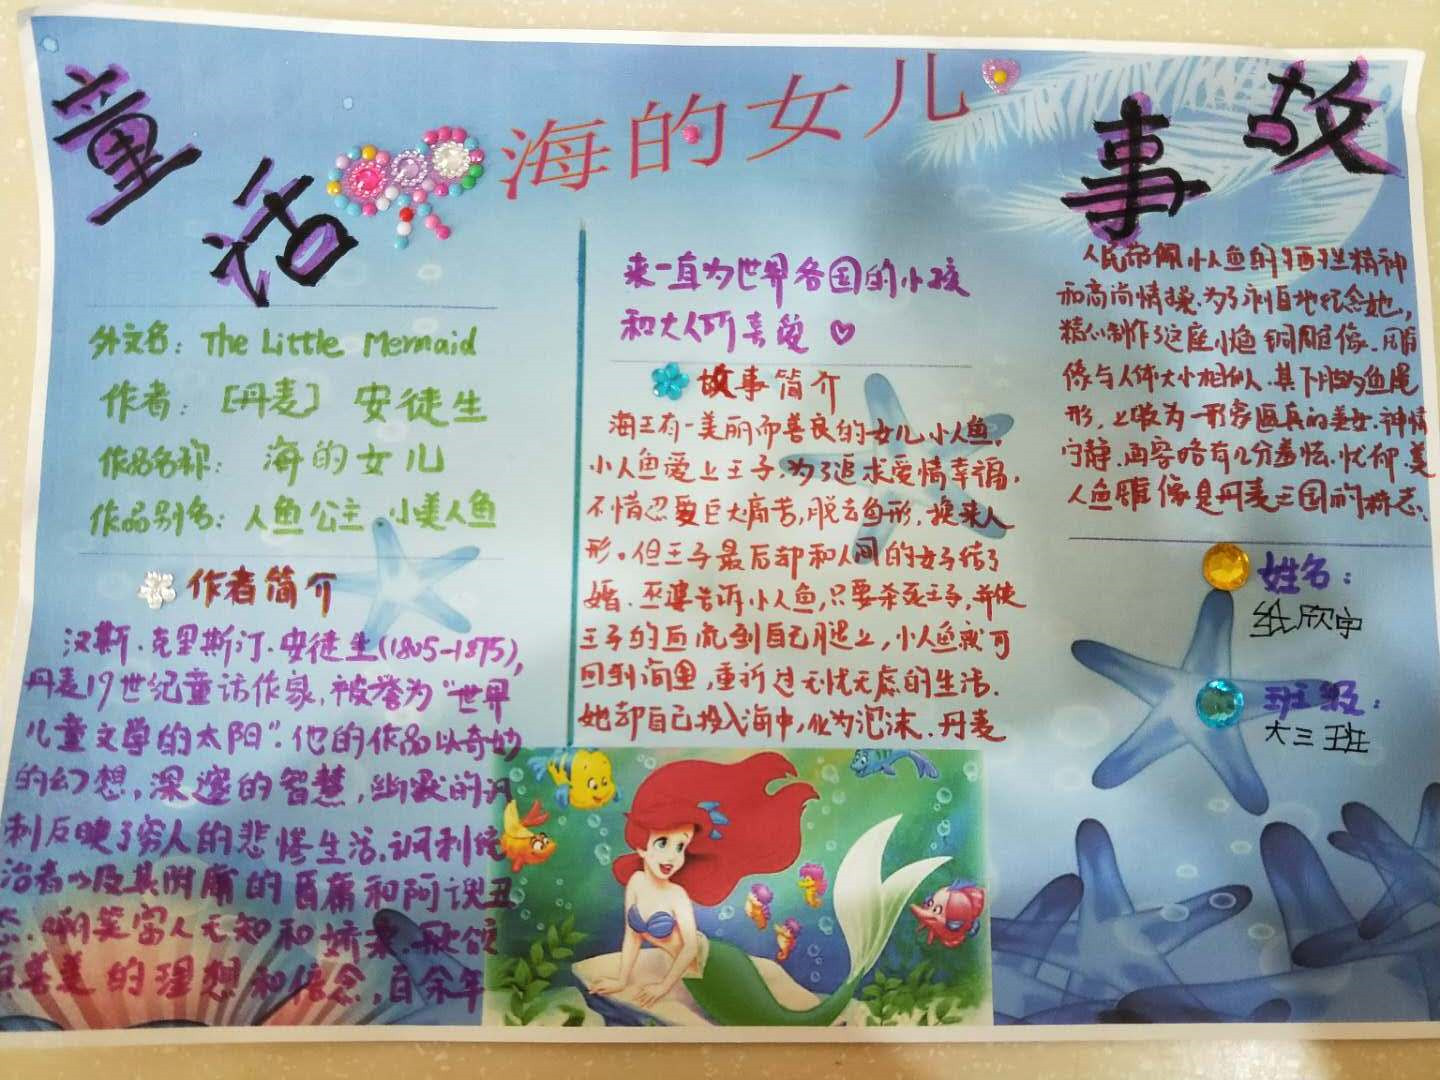 童话
海的女儿
故事
外文名：The Little Mermaid
作者：[丹麦] 安徒生
作品名称：海的女儿
作品别名：人鱼公主、小美人鱼
作者简介
汉斯·克里斯汀·安徒生(1805-1875),
丹麦19世纪童话作家,被誉为“世界
儿童文学的太阳”.他的作品以奇妙
的幻想,深邃的智慧,幽默的讽
刺反映了穷人的悲惨生活,讽刺统
治者以及其附庸的昏庸和阿谀丑
态.嘲笑富人无知和娇柔.歌颂
真善美的理想和信念,百余年
来一直为世界各国的小孩
和大人所喜爱♡
故事简介
海王有一美丽而善良的女儿小人鱼.
小人鱼爱上王子.为了追求爱情幸福,
不惜忍受巨大痛苦,脱去鱼形,换来人
形。但王子最后却和人间的女子结了
婚.巫婆告诉小人鱼,只要杀死王子,并使
王子的血流到自己腿上,小人鱼就可
回到海里,重新过无忧无虑的生活.
她却自己投入海中,化为泡沫.丹麦
人民敬佩小人鱼的牺牲精神
和高尚情操.为了永恒地纪念她,
精心制作了这座小鱼铜雕像.
像与人体大小相似.其下肢为鱼尾
形,上肢为一形象逼真的美女.神情
宁静.面容略有几分羞怯.忧郁.美
人鱼雕像是丹麦王国的标志.
姓名：
纸欣宇
班级：
大三班